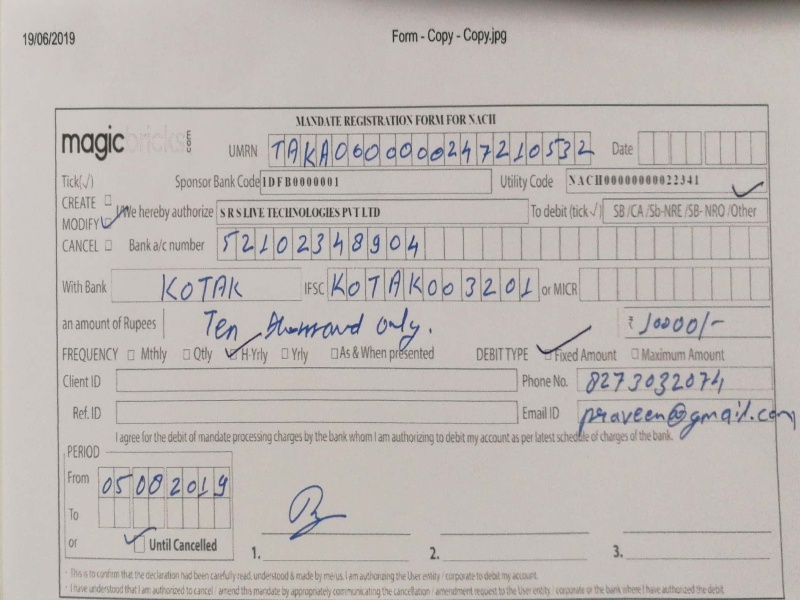 19/06/2019 Form - Copy - Copy.jpg
MANDATE REGISTRATION FORM FOR NACH
magicbricks.com UMRN TAKA0600000247210532 Date
Tick(√) Sponsor Bank Code IDFB0000001 Utility Code NACH00000000022341
CREATE
MODIFY I/We hereby authorize S R S LIVE TECHNOLOGIES PVT LTD To debit (tick √) SB /CA /Sb-NRE /SB- NRO /Other
CANCEL Bank a/c number 52102348904
With Bank KOTAK IFSC KOTAK003201 or MICR
an amount of Rupees Ten thousand only. ₹ 10000/-
FREQUENCY Mthly Qtly H-Yrly Yrly As & When presented DEBIT TYPE Fixed Amount Maximum Amount
Client ID Phone No. 8273032074
Ref. ID Email ID praveen@gmail.com
I agree for the debit of mandate processing charges by the bank whom I am authorizing to debit my account as per latest schedule of charges of the bank.
PERIOD
From 05082019
To
or Until Cancelled 1. 2. 3.
- This is to confirm that the declaration had been carefully read, understood & made by me/us. I am authorizing the User entity / corporate to debit my account.
- I have understood that I am authorized to cancel / amend this mandate by appropriately communicating the cancellation / amendment request to the User entity / corporate or the bank where I have authorized the debit.